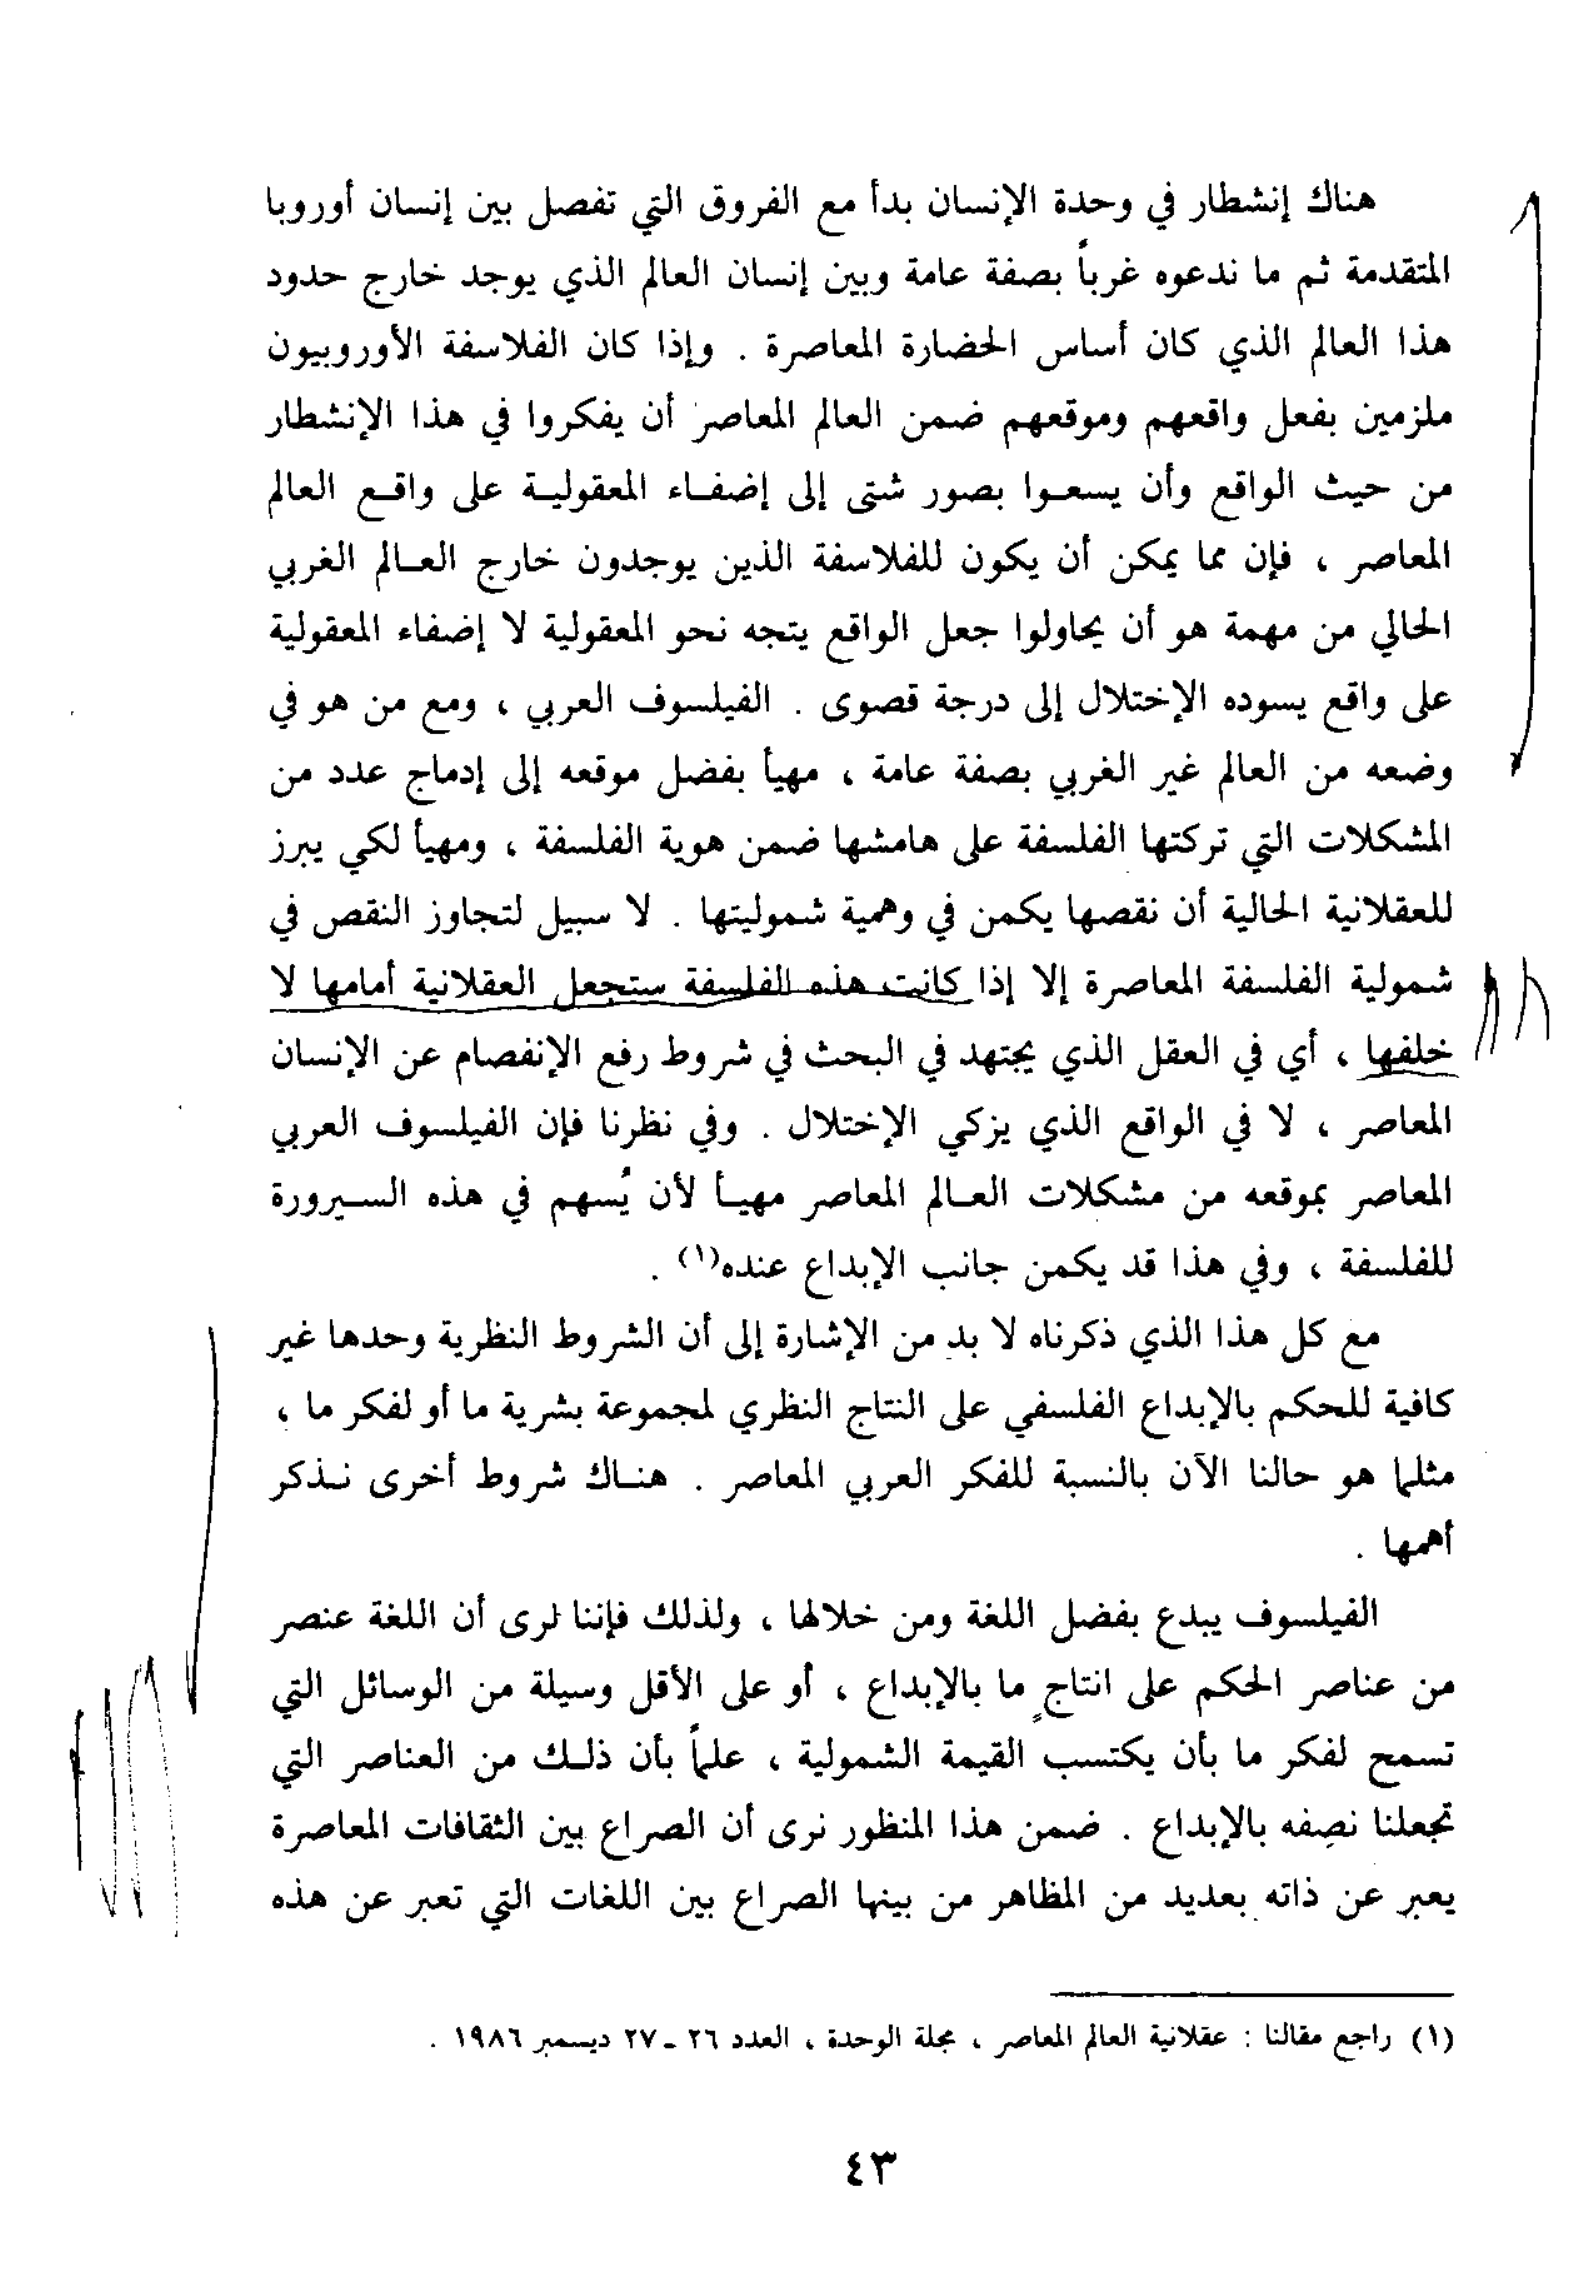 هناك إنشطار في وحدة الإنسان بدأ مع الفروق التي تفصل بين إنسان أوروبا
المتقدمة ثم ما ندعوه غرباً بصفة عامة وبين إنسان العالم الذي يوجد خارج حدود
هذا العالم الذي كان أساس الحضارة المعاصرة . وإذا كان الفلاسفة الأوروبيون
ملزمين بفعل واقعهم وموقعهم ضمن العالم المعاصر أن يفكروا في هذا الإنشطار
من حيث الواقع وأن يسعوا بصور شتى إلى إضفاء المعقولية على واقع العالم
المعاصر ، فإن مما يمكن أن يكون للفلاسفة الذين يوجدون خارج العالم الغربي
الحالي من مهمة هو أن يحاولوا جعل الواقع يتجه نحو المعقولية لا إضفاء المعقولية
على واقع يسوده الإختلال إلى درجة قصوى . الفيلسوف العربي ، ومع من هو في
وضعه من العالم غير الغربي بصفة عامة ، مهيأ بفضل موقعه إلى إدماج عدد من
المشكلات التي تركتها الفلسفة على هامشها ضمن هوية الفلسفة ، ومهيأ لكي يبرز
للعقلانية الحالية أن نقصها يكمن في وهمية شموليتها . لا سبيل لتجاوز النقص في
شمولية الفلسفة المعاصرة إلا إذا كانت هذه الفلسفة ستجعل العقلانية أمامها لا
خلفها ، أي في العقل الذي يجتهد في البحث في شروط رفع الإنفصام عن الإنسان
المعاصر ، لا في الواقع الذي يزكي الإختلال . وفي نظرنا فإن الفيلسوف العربي
المعاصر بموقعه من مشكلات العالم المعاصر مهيأ لأن يُسهم في هذه السيرورة
للفلسفة ، وفي هذا قد يكمن جانب الإبداع عنده(١) .
مع كل هذا الذي ذكرناه لا بد من الإشارة إلى أن الشروط النظرية وحدها غير
كافية للحكم بالإبداع الفلسفي على النتاج النظري لمجموعة بشرية ما أو لفكر ما ،
مثلما هو حالنا الآن بالنسبة للفكر العربي المعاصر . هناك شروط أخرى نذكر
أهمها .
الفيلسوف يبدع بفضل اللغة ومن خلالها ، ولذلك فإننا نرى أن اللغة عنصر
من عناصر الحكم على انتاجٍ ما بالإبداع ، أو على الأقل وسيلة من الوسائل التي
تسمح لفكر ما بأن يكتسب القيمة الشمولية ، علماً بأن ذلك من العناصر التي
تجعلنا نصِفه بالإبداع . ضمن هذا المنظور نرى أن الصراع بين الثقافات المعاصرة
يعبر عن ذاته بعديد من المظاهر من بينها الصراع بين اللغات التي تعبر عن هذه
(١) راجع مقالنا : عقلانية العالم المعاصر ، مجلة الوحدة ، العدد ٢٦ - ٢٧ ديسمبر ١٩٨٦ .
٤٣